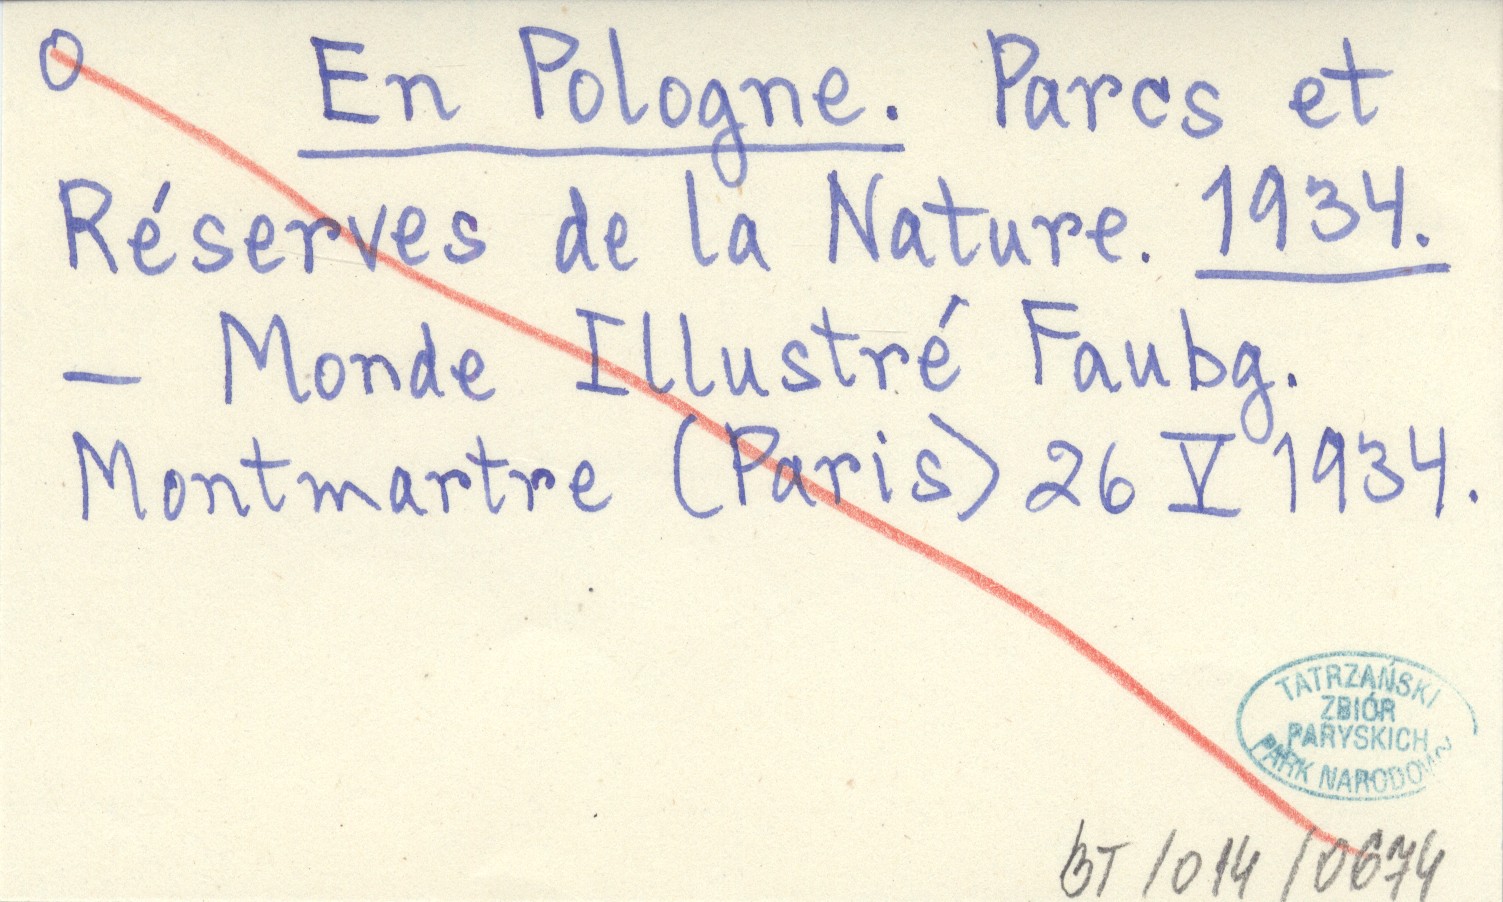 O En Pologne. Parcs et
Réserves de la Nature. 1934.
— Monde Illustré Faubg.
Montmartre (Paris) 26 V 1934.
TATRZAŃSKI
ZBIÓR
PARYSKICH
PARK NARODOWY
BT/014/0674